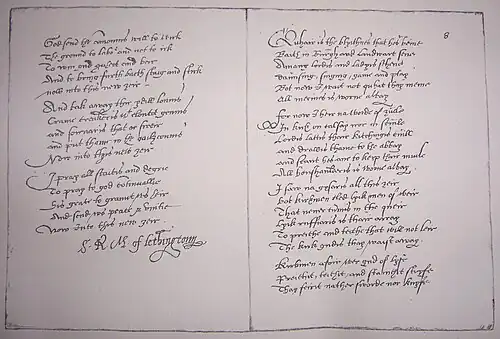 God send the commonis will to wirk
The ground to labor and not to irk
To win quheit and beir
And to bring furth baith staig and stirk
now into this new zeir
And tak away thir ydill lounis
clowtit gounis
and sornaris that ar sweir
and put thame in the
Now into this new zeir
I pray all statis and degrie
To pray to god continuallie
His grace to grant ws heir
And send ws peace & vnitie
Now into this new zeir
S. R. M. of Lethingtoun
8
Quhair is the blythnes that hes beine
Baith in Burgh and Landwart seine
Amang lordis and ladyis schene
Daunsing, singing, game and play
Bot now I wait not quhat thay meine
All merines is worne away
For now I heir na worde of Zuill
In kirk on calsay nor in scuill
Lordis lattis their kitchingis cuill
and drawis thame to the abbay
and scant hes ane to keip their muile
All houshaldaris is worne away
I saw no gysaris all this zeir
bot kirkmen cled lyk men of weir
That never cummis in the queir
Lyk ruffianis is their array
To preiche and teiche that will not leir
The kirk gudis thay waist away
Kirkmen afoir wer gud of lyfe
Preichit, teichit, and stainchit stryfe
Thay feirit nather sworde nor knyfe